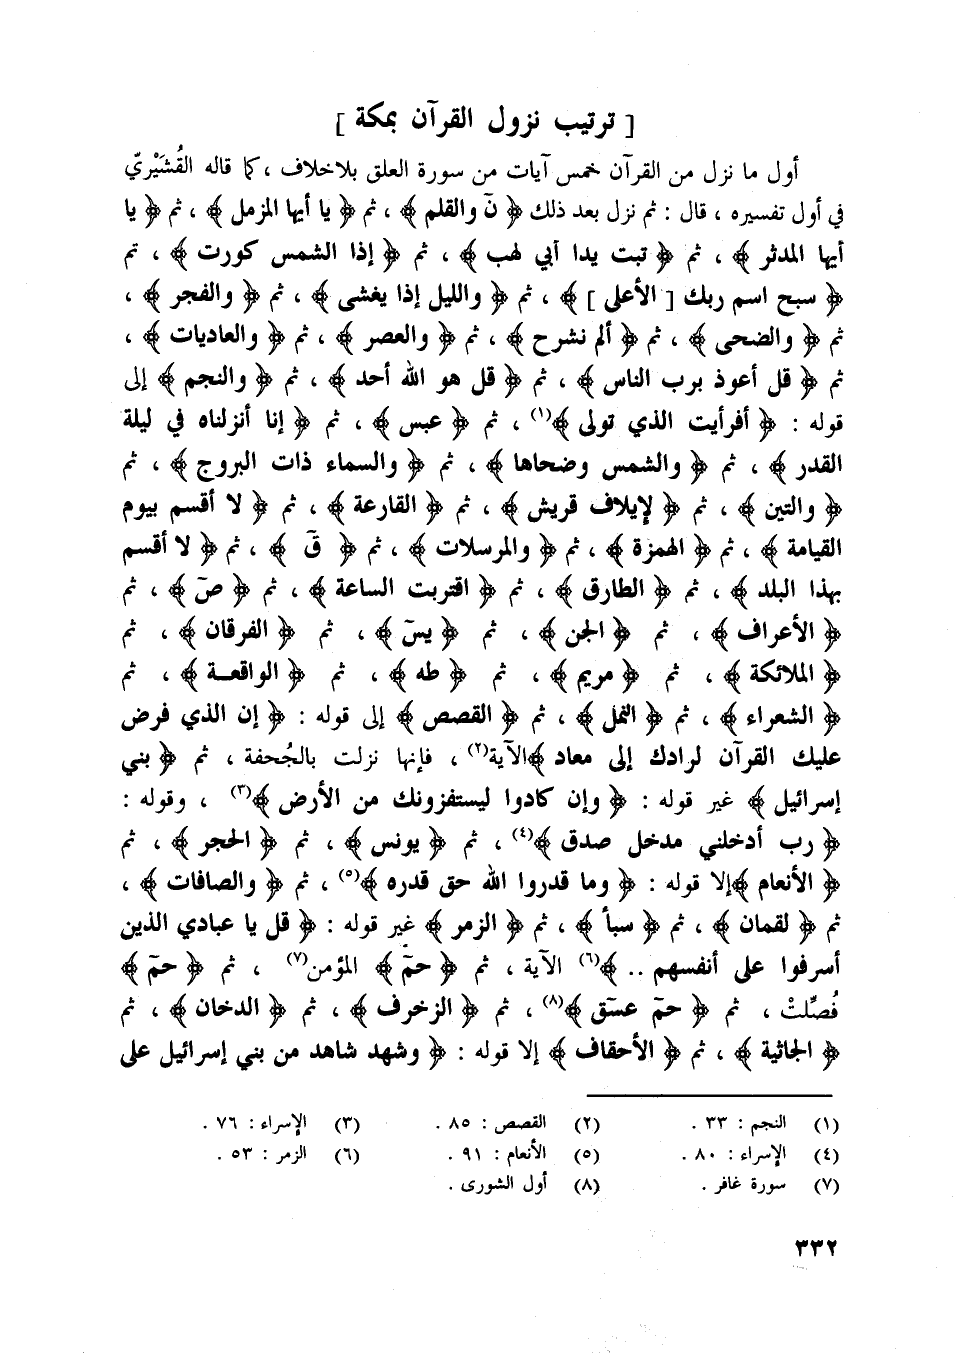 [ ترتيب نزول القرآن بمكة ]
أول ما نزل من القرآن خمس آيات من سورة العلق بلاخلاف ، كما قاله القُشَيْريّ
في أول تفسيره ، قال : ثم نزل بعد ذلك ﴿ نٓ والقلم ﴾ ، ثم ﴿ يا أيها المزمل ﴾ ، ثم ﴿ يا
أيها المدثر ﴾ ، ثم ﴿ تبت يدا أبي لهب ﴾ ، ثم ﴿ إذا الشمس كورت ﴾ ، ثم
﴿ سبح اسم ربك [ الأعلى ] ﴾ ، ثم ﴿ والليل إذا يغشى ﴾ ، ثم ﴿ والفجر ﴾ ،
ثم ﴿ والضحى ﴾ ، ثم ﴿ ألم نشرح ﴾ ، ثم ﴿ والعصر ﴾ ، ثم ﴿ والعاديات ﴾ ،
ثم ﴿ قل أعوذ برب الناس ﴾ ، ثم ﴿ قل هو الله أحد ﴾ ، ثم ﴿ والنجم ﴾ إلى
قوله : ﴿ أفرأيت الذي تولى ﴾(١) ، ثم ﴿ عبس ﴾ ، ثم ﴿ إنا أنزلناه في ليلة
القدر ﴾ ، ثم ﴿ والشمس وضحاها ﴾ ، ثم ﴿ والسماء ذات البروج ﴾ ، ثم
﴿ والتين ﴾ ، ثم ﴿ لإيلاف قريش ﴾ ، ثم ﴿ القارعة ﴾ ، ثم ﴿ لا أقسم بيوم
القيامة ﴾ ، ثم ﴿ الهمزة ﴾ ، ثم ﴿ والمرسلات ﴾ ، ثم ﴿ قٓ ﴾ ، ثم ﴿ لا أقسم
بهذا البلد ﴾ ، ثم ﴿ الطارق ﴾ ، ثم ﴿ اقتربت الساعة ﴾ ، ثم ﴿ صٓ ﴾ ، ثم
﴿ الأعراف ﴾ ، ثم ﴿ الجن ﴾ ، ثم ﴿ يسٓ ﴾ ، ثم ﴿ الفرقان ﴾ ، ثم
﴿ الملائكة ﴾ ، ثم ﴿ مريم ﴾ ، ثم ﴿ طه ﴾ ، ثم ﴿ الواقعـة ﴾ ، ثم
﴿ الشعراء ﴾ ، ثم ﴿ النمل ﴾ ، ثم ﴿ القصص ﴾ إلى قوله : ﴿ إن الذي فرض
عليك القرآن لرادك إلى معاد ﴾الآية(٢) ، فإنها نزلت بالجُحفة ، ثم ﴿ بني
إسرائيل ﴾ غير قوله : ﴿ وإن كادوا ليستفزونك من الأرض ﴾(٣) ، وقوله :
﴿ رب أدخلني مدخل صدق ﴾(٤) ، ثم ﴿ يونس ﴾ ، ثم ﴿ الحجر ﴾ ، ثم
﴿ الأنعام ﴾إلا قوله : ﴿ وما قدروا الله حق قدره ﴾(٥) ، ثم ﴿ والصافات ﴾ ،
ثم ﴿ لقمان ﴾ ، ثم ﴿ سبأ ﴾ ، ثم ﴿ الزمر ﴾ غير قوله : ﴿ قل يا عبادي الذين
أسرفوا على أنفسهم .. ﴾(٦) الآية ، ثم ﴿ حمٓ ﴾ المؤمن(٧) ، ثم ﴿ حمٓ ﴾
فُصِّلتْ ، ثم ﴿ حمٓ عسٓق ﴾(٨) ، ثم ﴿ الزخرف ﴾ ، ثم ﴿ الدخان ﴾ ، ثم
﴿ الجاثية ﴾ ، ثم ﴿ الأحقاف ﴾ إلا قوله : ﴿ وشهد شاهد من بني إسرائيل على
(١) النجم : ٣٣ . (٢) القصص : ٨٥ . (٣) الإسراء : ٧٦ .
(٤) الإسراء : ٨٠ . (٥) الأنعام : ٩١ . (٦) الزمر : ٥٣ .
(٧) سورة غافر . (٨) أول الشورى .
٣٣٢